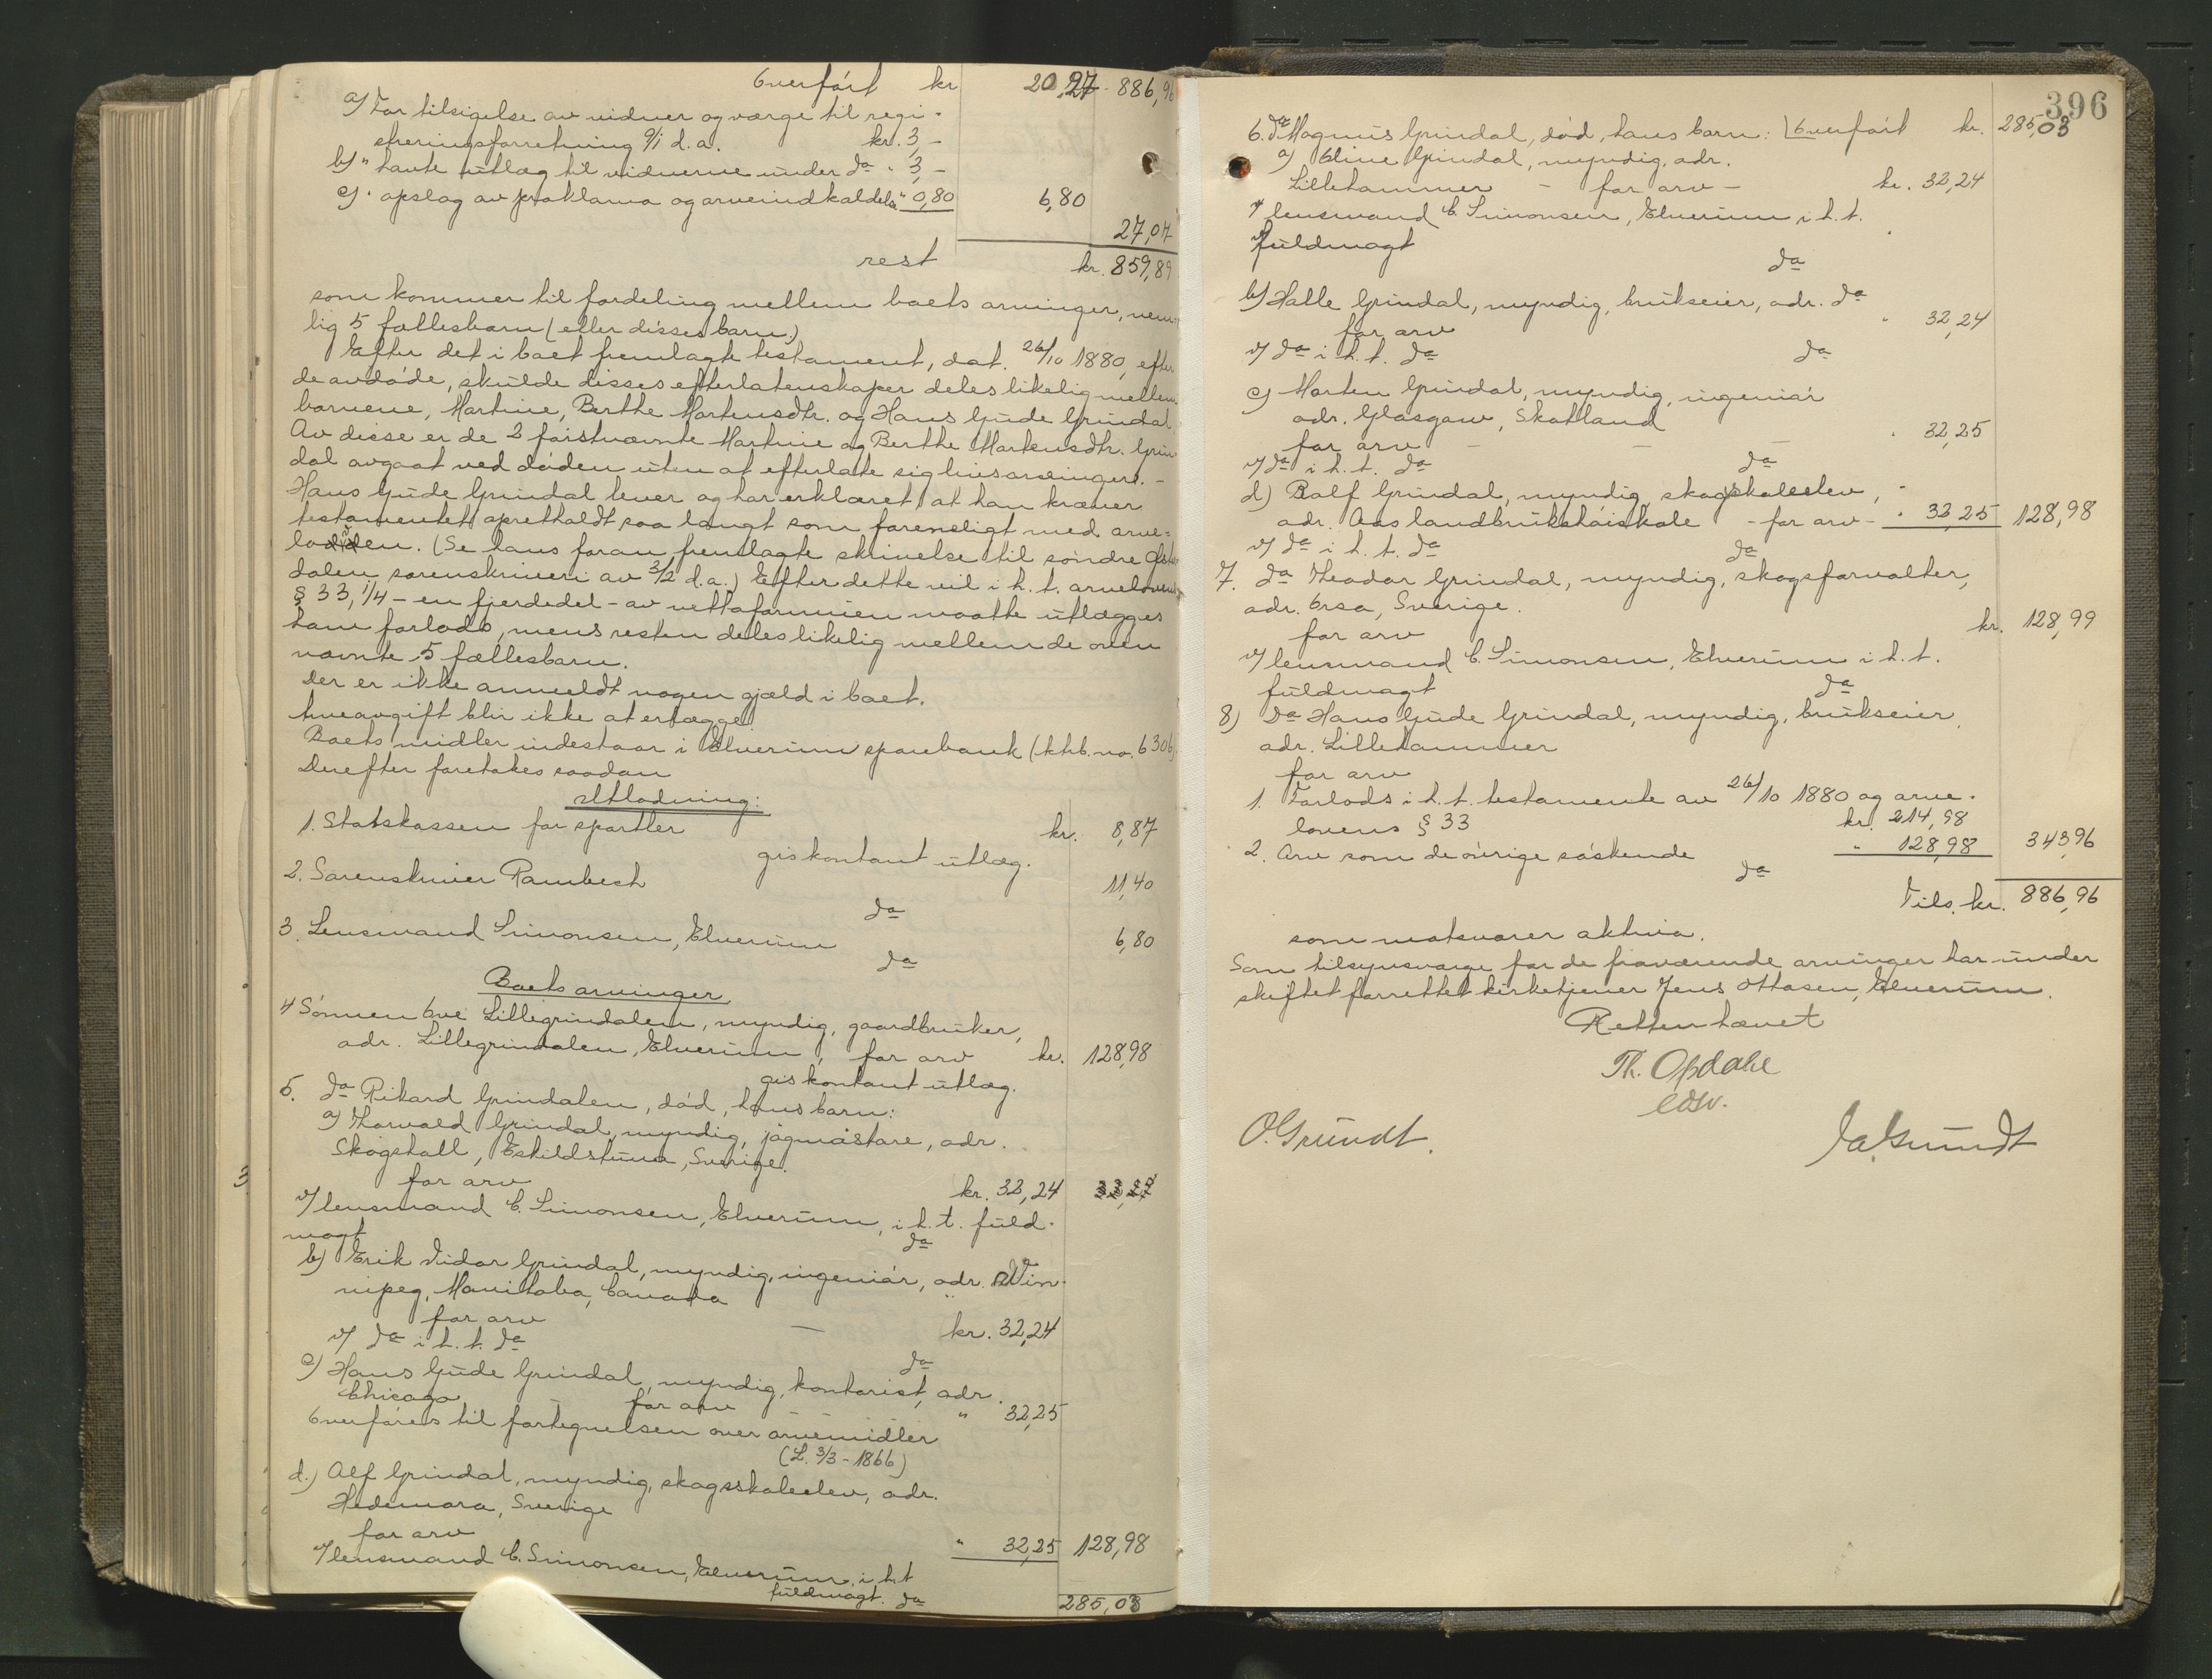 Overført kr 20,27 886,96
a) For tilsigelse av vidner og værge til regi-
streringsforretning 9/1 d.a. kr. 3,-
b) " havte utlæg til vidnerne under do " 3,-
c) " opslag av proklama og arveindkaldelse " 0,80 6,80
27,07
rest kr. 859,89
som kommer til fordeling mellem boets arvinger, nem-
lig 5 fællesbarn (eller disses barn)
Efter det i boet fremlagte testament, dat. 26/10 1880, efter
de avdøde, skulde disses efterlatenskaper deles likelig mellem
barnene, Martine, Berthe Martensdtr. og Hans Gude Grindal
Av disse er de 2 førstnævnte Martine og Berthe Martensdtr. Grin
dal avgaat ved døden uten at efterlate sig livsarvinger. -
Hans Gude Grindal lever og har erklæret at han kræver
testamentet opretholdt saa langt som foreneligt med arve-
lodden. (Se hans foran fremlagte skrivelse til søndre Øster
dalen sorenskriveri av 3/2 d.a.) Efter dette vil i h.t. arvelovens
§ 33, 1/4 - en fjerdedel - av nettoformuen maatte utlægges
ham forlods, mens resten deles likelig mellem de oven
nævnte 5 fællesbarn.
Der er ikke anmeldt nogen gjæld i boet.
Arveavgift blir ikke at erlægge
Boets midler indestaar i Elverum sparebank (ktrb. no. 6306)
Derefter foretakes saadan
Utlodning:
1. Statskassen for sportler kr. 8,87
gis kontant utlæg.
2. Sorenskriver Rambech 11,40
do
3. Lensmand Simonsen, Elverum 6,80
do
Boets arvinger
4 Sønnen Ove Lillegrindalen, myndig, gaardbruker,
adr. Lillegrindalen, Elverum, for arv kr. 128,98
gis kontant utlæg.
5. do Rikard Grindalen, død, hans barn:
a) Thorvald Grindal, myndig, jägmästare, adr.
Skogshall, Eskildstuna, Sverige.
for arv kr. 32,24
v/ lensmand C. Simonsen, Elverum, i h.t. fuld-
magt do
b) Erik Vidar Grindal, myndig, ingeniør, adr. Win-
nipeg, Manitoba, Canada
for arv - kr. 32,24
v/ do i h.t. do
do
c) Hans Gude Grindal, myndig, kontorist, adr.
Chicago - for arv " 32,25
Overføres til fortegnelsen over arvemidler
(L. 3/3-1866)
d.) Alf Grindal, myndig, skogsskoleelev, adr.
Hedemora, Sverige
for arv " 32,25 128,98
v/ lensmand C. Simonsen, Elverum, i h.t
fuldmagt. do
285,03
396
6. do Magnus Grindal, død, hans barn: Overført kr. 285,03
a) Oline Grindal, myndig, adr.
Lillehammer - for arv - kr. 32,24
v/ lensmand C. Simonsen, Elverum i h.t.
fuldmagt
do
b) Halle Grindal, myndig, brukseier, adr. do
for arv " 32,24
v/ do i h.t. do do
c) Morten Grindal, myndig, ingeniør
adr. Glasgow, Skotland
for arv - - - " 32,25
v/ do i h.t. do do
d) Ralf Grindal, myndig, skogskoleelev,
adr. Aas landbrukshøiskole - for arv - " 32,25 128,98
v/ do i h.t. do do
7. do Theodor Grindal, myndig, skogsforvalter,
adr. Orsa, Sverige.
for arv kr. 128,99
v/ lensmand C. Simonsen, Elverum i h.t.
fuldmagt do
8) do Hans Gude Grindal, myndig, brukseier,
adr. Lillehammer
for arv
1. Forlods i h.t. testamente av 26/10 1880 og arve-
lovens § 33 kr. 214,98
2. Arv som de øvrige søskende " 128,98 343,96
do
Tils. kr. 886,96
som motsvarer aktiva.
Som tilsynsværge for de fraværende arvinger har under
skiftet forrettet kirketjener Jens Ottosen, Elverum.
Retten hævet
Th. Opdahl
edsv.
O. Grundt. Ja. Grundt